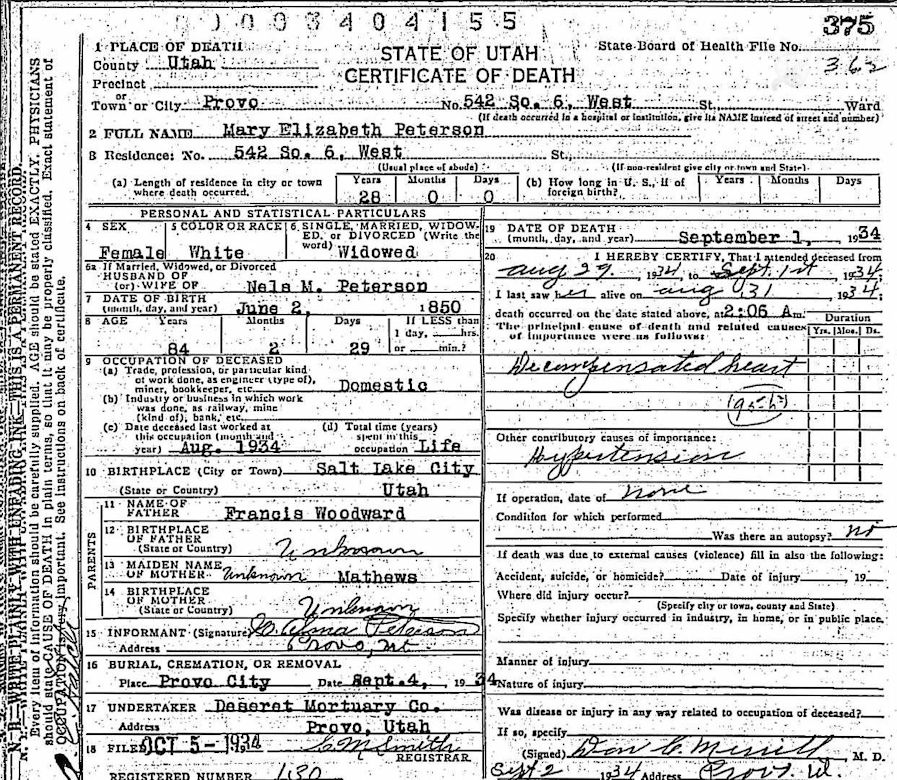 0003404155
375
1 PLACE OF DEATH
STATE OF UTAH
CERTIFICATE OF DEATH
State Board of Health File No.
362
County Utah
Precinct
or
Town or City Provo No. 542 So. 6, West St., Ward
(If death occurred in a hospital or institution, give its NAME instead of street and number)
2 FULL NAME Mary Elizabeth Peterson
3 Residence: No. 542 So. 6, West St.,
(Usual place of abode) (If non-resident give city or town and State)
(a) Length of residence in city or town where death occurred. Years 28 Months 0 Days 0
(b) How long in U. S., if of foreign birth? Years Months Days
PERSONAL AND STATISTICAL PARTICULARS
4 SEX Female
5 COLOR OR RACE White
6 SINGLE, MARRIED, WIDOWED, OR DIVORCED (Write the word) Widowed
6a If Married, Widowed, or Divorced
HUSBAND OF
(or) WIFE OF Nels M. Peterson
7 DATE OF BIRTH
(month, day, and year) June 2, 1850
8 AGE Years 84 Months 2 Days 29 If LESS than 1 day, hrs. or min.?
9 OCCUPATION OF DECEASED
(a) Trade, profession, or particular kind of work done, as engineer (type of), miner, bookkeeper, etc. Domestic
(b) Industry or business in which work was done, as railway, mine (kind of), bank, etc.
(c) Date deceased last worked at this occupation (month and year) Aug. 1934
(d) Total time (years) spent in this occupation Life
10 BIRTHPLACE (City or Town) Salt Lake City
(State or Country) Utah
PARENTS
11 NAME OF FATHER Francis Woodward
12 BIRTHPLACE OF FATHER
(State or Country) Unknown
13 MAIDEN NAME OF MOTHER Unknown Mathews
14 BIRTHPLACE OF MOTHER
(State or Country) Unknown
15 INFORMANT (Signature) Alma Peterson
Address Provo, Ut
16 BURIAL, CREMATION, OR REMOVAL
Place Provo City Date Sept. 4, 1934
17 UNDERTAKER Deseret Mortuary Co.
Address Provo, Utah
18 FILED OCT 5-1934 Smith
REGISTRAR.
REGISTERED NUMBER 130
19 DATE OF DEATH
(month, day, and year) September 1, 1934
20 I HEREBY CERTIFY, That I attended deceased from
Aug 29, 1934 to Sept. 1st 1934;
I last saw her alive on Aug 31 1934;
death occurred on the date stated above, at 2:06 A m.
The principal cause of death and related causes of importance were as follows:
Duration
Yrs. Mos. Ds.
Decompensated heart
(95-b)
Other contributory causes of importance:
Hypertension
If operation, date of none
Condition for which performed
Was there an autopsy? no
If death was due to external causes (violence) fill in also the following:
Accident, suicide, or homicide? Date of injury , 19
Where did injury occur?
(Specify city or town, county and State)
Specify whether injury occurred in industry, in home, or in public place.
Manner of injury
Nature of injury
Was disease or injury in any way related to occupation of deceased?
If so, specify
(Signed) Don C. Merrill M. D.
Sept 2 1934 Address Provo Ut.
N. B.—WRITE PLAINLY WITH UNFADING INK—THIS IS A PERMANENT RECORD.
Every item of information should be carefully supplied. AGE should be stated EXACTLY. PHYSICIANS
should state CAUSE OF DEATH in plain terms, so that it may be properly classified. Exact statement of
OCCUPATION is very important. See instructions on back of certificate.